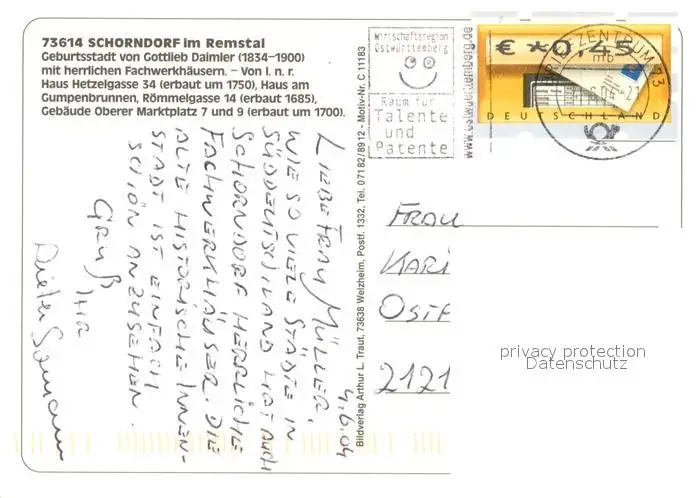 73614 SCHORNDORF im Remstal
Geburtsstadt von Gottlieb Daimler (1834–1900)
mit herrlichen Fachwerkhäusern. – Von l. n. r.
Haus Hetzelgasse 34 (erbaut um 1750), Haus am
Gumpenbrunnen, Römmelgasse 14 (erbaut 1685),
Gebäude Oberer Marktplatz 7 und 9 (erbaut um 1700).
4.6.04
LIEBE FRAU MÜLLER,
WIE SO VIELE STÄDTE IN
SÜDDEUTSCHLAND HAT AUCH
SCHORNDORF HERRLICHE
FACHWERKHÄUSER. DIE
ALTE HISTORISCHE INNEN-
STADT IST EINFACH
SCHÖN ANZUSEHEN.
Gruß
Ihr
Dieter
Bildverlag Arthur L. Traut, 73638 Welzheim, Postf. 1332, Tel. 07182/8912 - Motiv-Nr. C 11183
Wirtschaftsregion
Ostwürttemberg
Raum für
Talente
und
Patente
www.ostwuerttemberg.de
€ *0,45
DEUTSCHLAND
BRIEFZENTRUM 73
mb
6.04-21
FRAU
KARI
OSTF
2121
privacy protection
Datenschutz